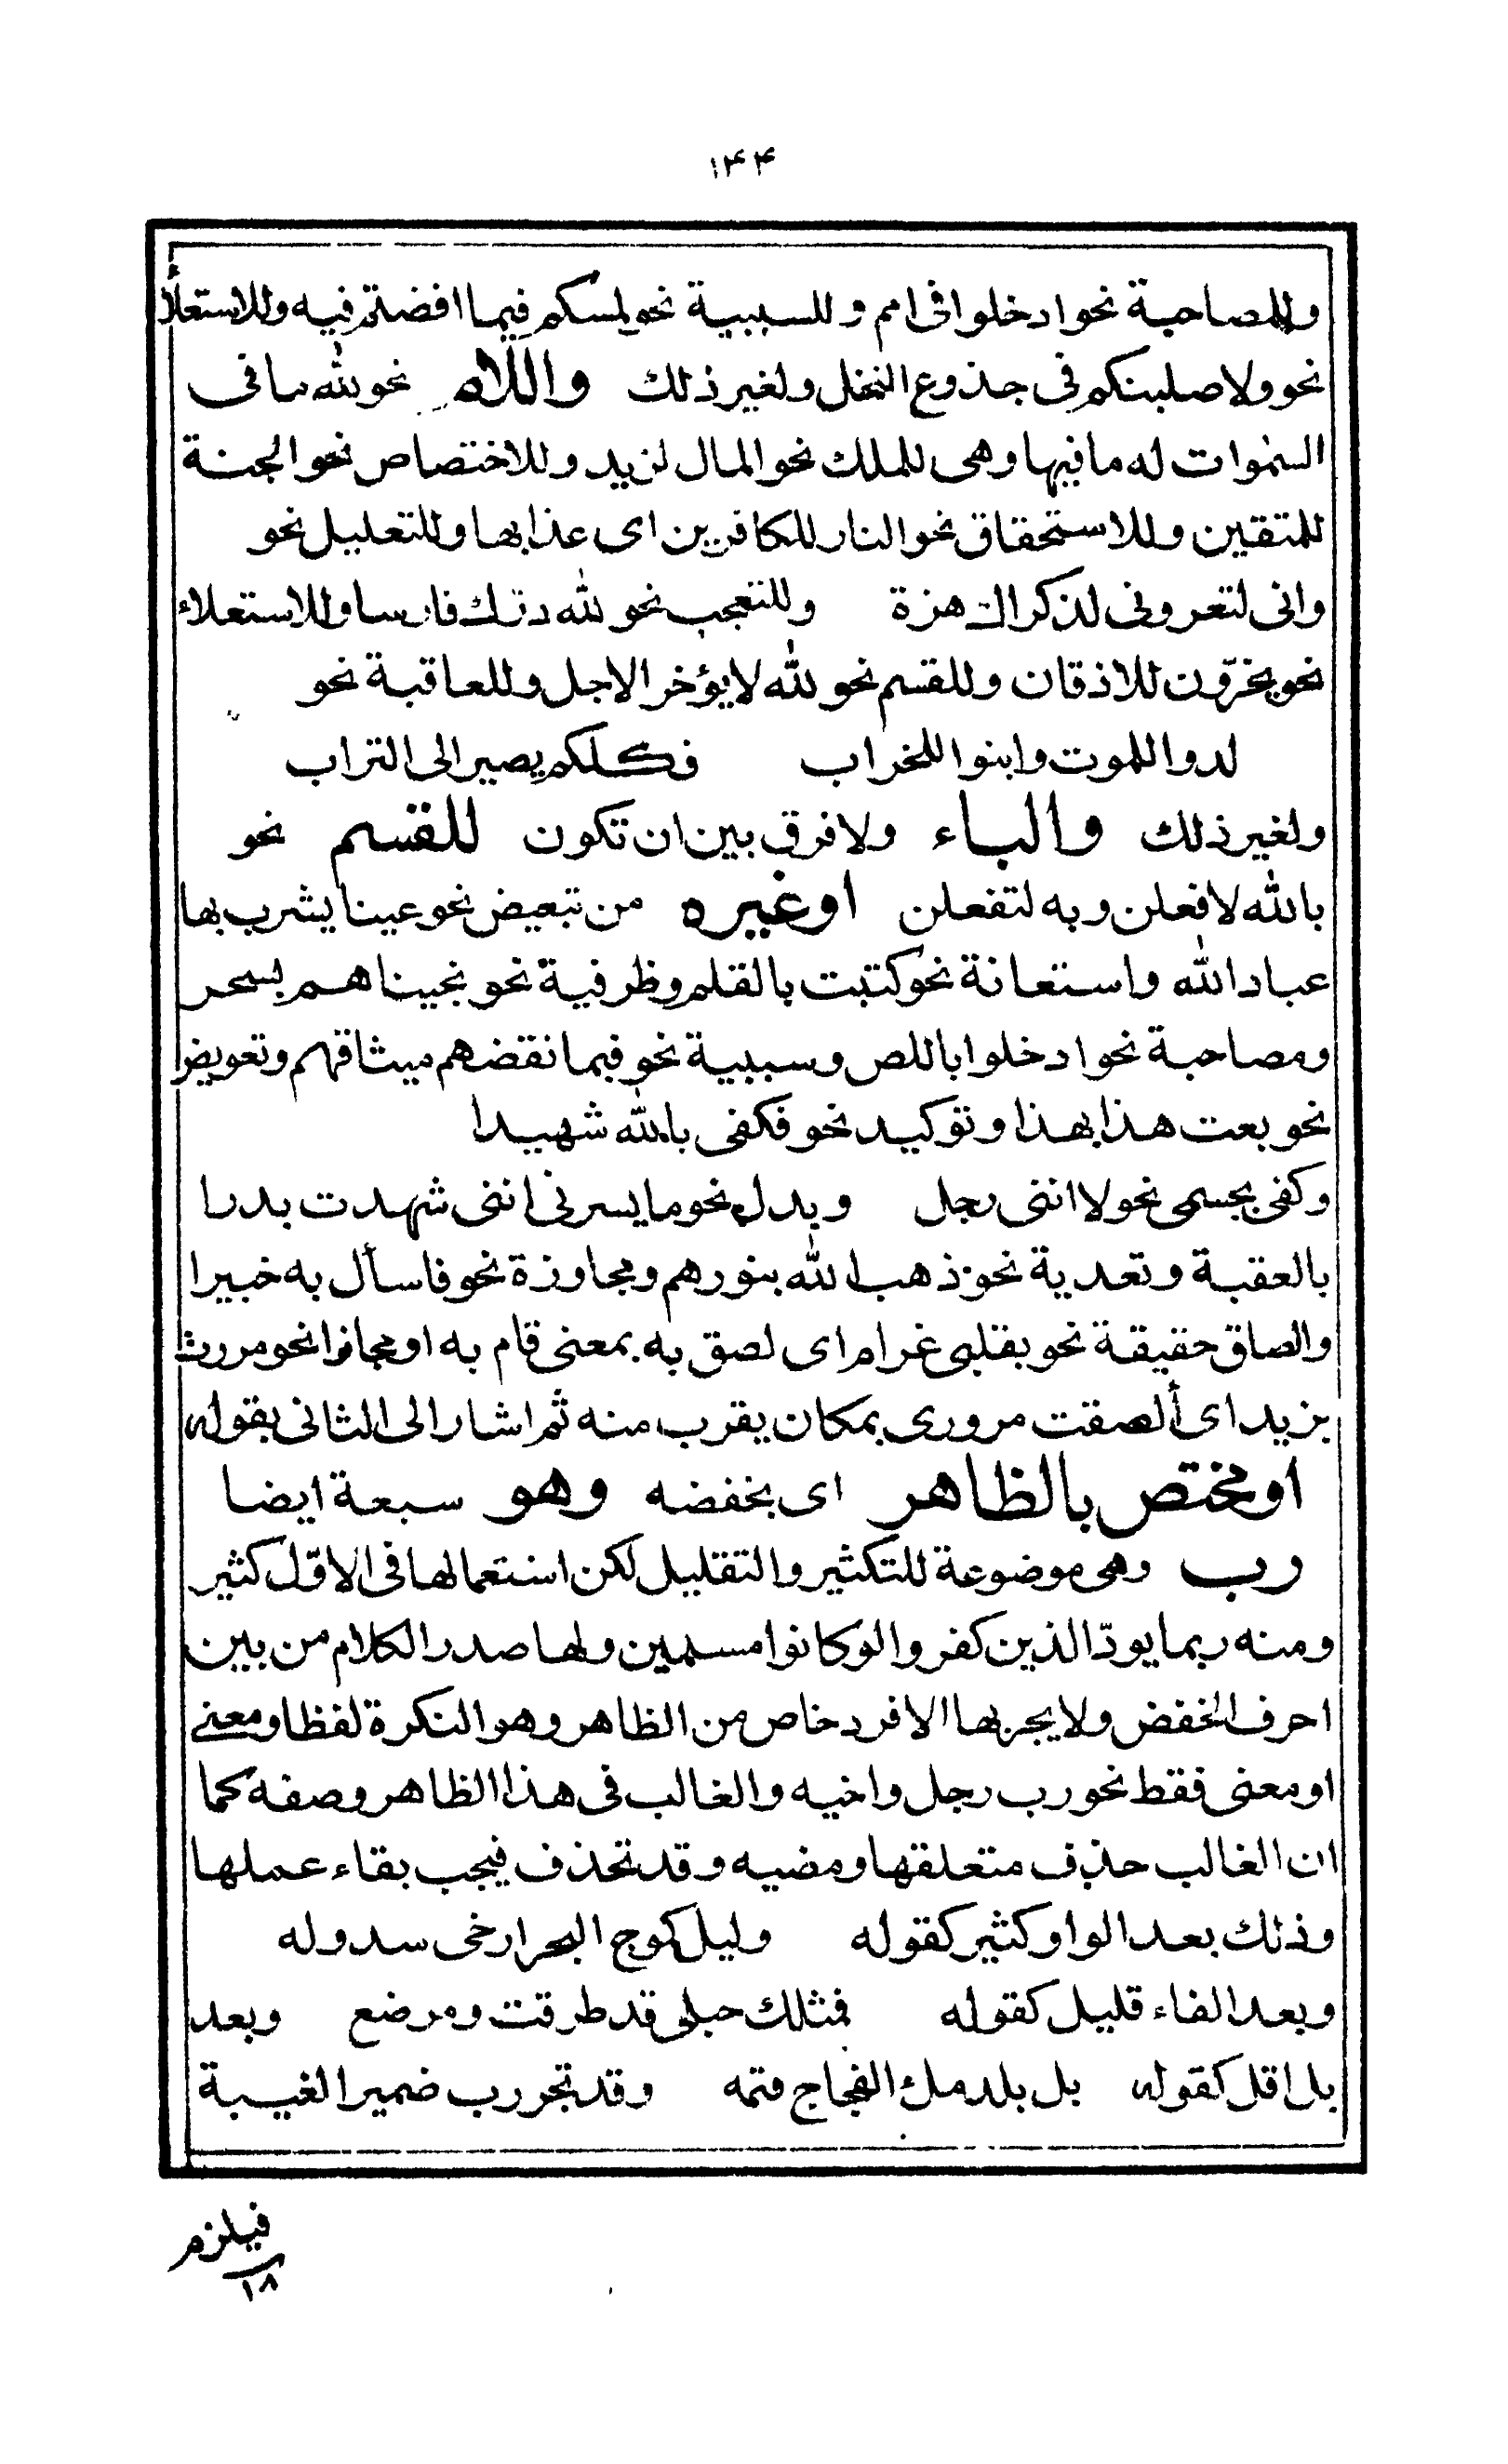 ١٤٤
وللمصاحبة نحو ادخلوا فى امم وللسببية نحو لمسكم فيما افضتم فيه وللاستعلأ
نحو ولاصلبنكم فى جذوع النخل ولغير ذلك واللام نحو لله ما فى
السموات له ما فيها وهى للملك نحو المال لزيد وللاختصاص نحو الجنة
للمتقين وللاستحقاق نحو النار للكافرين اى عذابها وللتعليل نحو
وانى لتعرونى لذكراك هزة وللتعجب نحو لله درك فارسا وللاستعلاء
نحو يخرّون للاذقان وللقسم نحو لله لا يؤخر الاجل وللعاقبة نحو
لدوا للموت وابنوا للخراب فكلكم يصير الى التراب
ولغير ذلك والباء ولا فرق بين ان تكون للقسم نحو
بالله لافعلن وبه لتفعلن اوغيره من تبعيض نحو عينا يشرب بها
عباد الله واستعانة نحو كتبت بالقلم وظرفية نحو نجيناهم بسحر
ومصاحبة نحو ادخلوا باللص وسببية نحو فبما نقضهم ميثاقهم وتعويض
نحو بعت هذا بهذا وتوكيد نحو فكفى بالله شهيدا
وكفى بجسمى نحولا اننى رجل وبدل نحو ما يسرنى اننى شهدت بدرا
بالعقبة وتعدية نحو ذهب الله بنورهم ومجاوزة نحو فاسأل به خبيرا
والصاق حقيقة نحو بقلبى غرام اى لصق به بمعنى قام به او مجازا نحو مررت
بزيد اى ألصقت مرورى بمكان يقرب منه ثم اشار الى الثانى بقوله
او مختص بالظاهر اى بخفضه وهو سبعة ايضا
رب وهى موضوعة للتكثير والتقليل لكن استعمالها فى الاوّل كثير
ومنه ربما يودّ الذين كفروا لو كانوا مسلمين ولها صدر الكلام من بين
احرف الخفض ولا يجر بها الا فرد خاص من الظاهر وهو النكرة لفظا ومعنى
او معنى فقط نحو رب رجل واخيه والغالب فى هذا الظاهر وصفه كما
ان الغالب حذف متعلقها ومضيه وقد تحذف فيجب بقاء عملها
وذلك بعد الواو كثير كقوله وليل كموج البحر ارخى سدوله
وبعد الفاء قليل كقوله فمثلك حبلى قد طرقت ومرضع وبعد
بل اقل كقوله بل بلد ملء الفجاج قتمه وقد تجر رب ضمير الغيبة
فيلزم
١٨